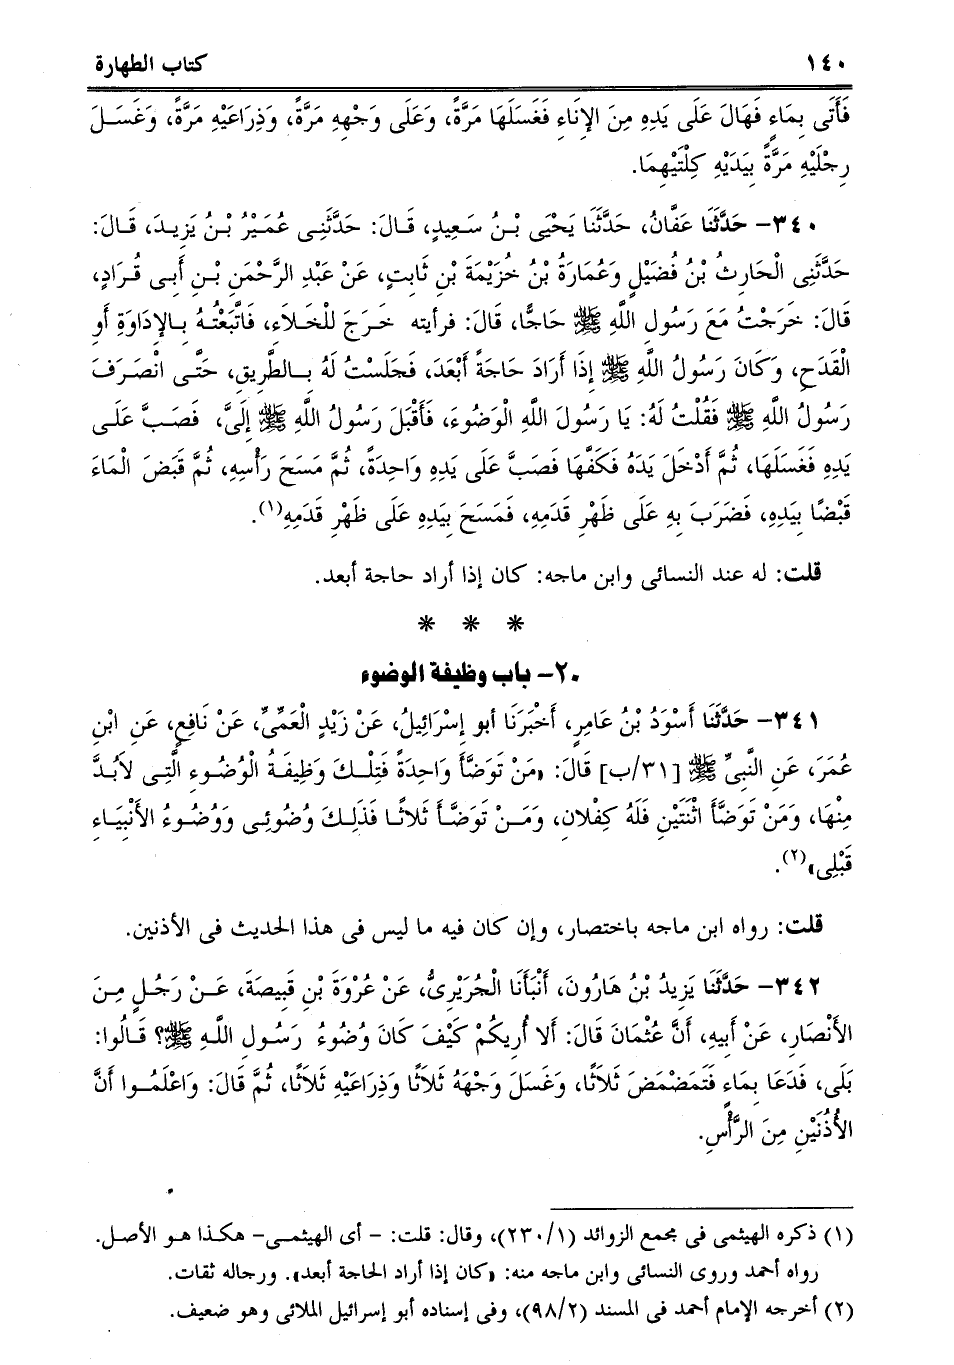 ١٤٠ كتاب الطهارة
فَأَتَى بِمَاءٍ فَهَالَ عَلَى يَدِهِ مِنَ الإِنَاءِ فَغَسَلَهَا مَرَّةً، وَعَلَى وَجْهِهِ مَرَّةً، وَذِرَاعَيْهِ مَرَّةً، وَغَسَلَ
رِجْلَيْهِ مَرَّةً بِيَدَيْهِ كِلْتَيْهِمَا.
٣٤٠- حَدَّثَنَا عَفَّانُ، حَدَّثَنَا يَحْيَى بْنُ سَعِيدٍ، قَالَ: حَدَّثَنِى عُمَيْرُ بْنُ يَزِيدَ، قَالَ:
حَدَّثَنِى الْحَارِثُ بْنُ فُضَيْلٍ وَعُمَارَةُ بْنُ خُزَيْمَةَ بْنِ ثَابِتٍ، عَنْ عَبْدِ الرَّحْمَنِ بْنِ أَبِى قُرَادٍ،
قَالَ: خَرَجْتُ مَعَ رَسُولِ اللَّهِ ﷺ حَاجًّا، قَالَ: فرأيته خَرَجَ لِلْخَلَاءِ، فَاتَّبَعْتُهُ بِالإِدَاوَةِ أَوِ
الْقَدَحِ، وَكَانَ رَسُولُ اللَّهِ ﷺ إِذَا أَرَادَ حَاجَةً أَبْعَدَ، فَجَلَسْتُ لَهُ بِالطَّرِيقِ، حَتَّى انْصَرَفَ
رَسُولُ اللَّهِ ﷺ فَقُلْتُ لَهُ: يَا رَسُولَ اللَّهِ الْوَضُوءَ، فَأَقْبَلَ رَسُولُ اللَّهِ ﷺ إِلَىَّ، فَصَبَّ عَلَى
يَدِهِ فَغَسَلَهَا، ثُمَّ أَدْخَلَ يَدَهُ فَكَفَّهَا فَصَبَّ عَلَى يَدِهِ وَاحِدَةً، ثُمَّ مَسَحَ رَأْسِهِ، ثُمَّ قَبَضَ الْمَاءَ
قَبْضًا بِيَدِهِ، فَضَرَبَ بِهِ عَلَى ظَهْرِ قَدَمِهِ، فَمَسَحَ بِيَدِهِ عَلَى ظَهْرِ قَدَمِهِ(١).
قلت: له عند النسائى وابن ماجه: كان إذا أراد حاجة أبعد.
* * *
٢٠- باب وظيفة الوضوء
٣٤١- حَدَّثَنَا أَسْوَدُ بْنُ عَامِرٍ، أَخْبَرَنَا أبو إِسْرَائِيلُ، عَنْ زَيْدٍ الْعَمِّىِّ، عَنْ نَافِعٍ، عَنِ ابْنِ
عُمَرَ، عَنِ النَّبِىِّ ﷺ [٣١/ب] قَالَ: «مَنْ تَوَضَّأَ وَاحِدَةً فَتِلْكَ وَظِيفَةُ الْوُضُوءِ الَّتِى لاَبُدَّ
مِنْهَا، وَمَنْ تَوَضَّأَ اثْنَتَيْنِ فَلَهُ كِفْلاَنِ، وَمَنْ تَوَضَّأَ ثَلاَثًا فَذَلِكَ وُضُوئِى وَوُضُوءُ الأَنْبِيَاءِ
قَبْلِى»(٢).
قلت: رواه ابن ماجه باختصار، وإن كان فيه ما ليس فى هذا الحديث فى الأذنين.
٣٤٢- حَدَّثَنَا يَزِيدُ بْنُ هَارُونَ، أَنْبَأَنَا الْجُرَيْرِىُّ، عَنْ عُرْوَةَ بْنِ قَبِيصَةَ، عَنْ رَجُلٍ مِنَ
الأَنْصَارِ، عَنْ أَبِيهِ، أَنَّ عُثْمَانَ قَالَ: أَلا أُرِيكُمْ كَيْفَ كَانَ وُضُوءُ رَسُولِ اللَّهِ ﷺ؟ قَالُوا:
بَلَى، فَدَعَا بِمَاءٍ فَتَمَضْمَضَ ثَلاَثًا، وَغَسَلَ وَجْهَهُ ثَلاَثًا وَذِرَاعَيْهِ ثَلاَثًا، ثُمَّ قَالَ: وَاعْلَمُوا أَنَّ
الأُذُنَيْنِ مِنَ الرَّأْسِ.
(١) ذكره الهيثمى فى مجمع الزوائد (٢٣٠/١)، وقال: قلت: - أى الهيثمى- هكذا هو الأصل.
رواه أحمد وروى النسائى وابن ماجه منه: «كان إذا أراد الحاجة أبعد». ورجاله ثقات.
(٢) أخرجه الإمام أحمد فى المسند (٩٨/٢)، وفى إسناده أبو إسرائيل الملائى وهو ضعيف.